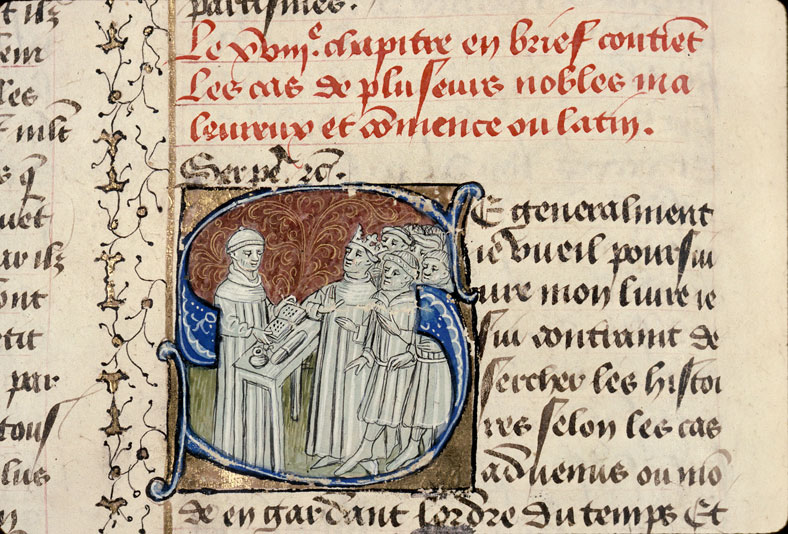 t ilz
em
les
mlt
s q̃
uet
ar ilz
ont
etit
par
tous
lus
n
partismes.
Le xviii.e chapitre en brief contiẽt
Les cas de pluseurs nobles ma
leureux et cõmence ou latin.
Serpẽ. rc̃.
SE generalment
ie vueil poursui
ure mon liure ie
sui contraint de
sercher les histoi
res selon les cas
aduenus ou mõ
de en gardant lordre du temps Et